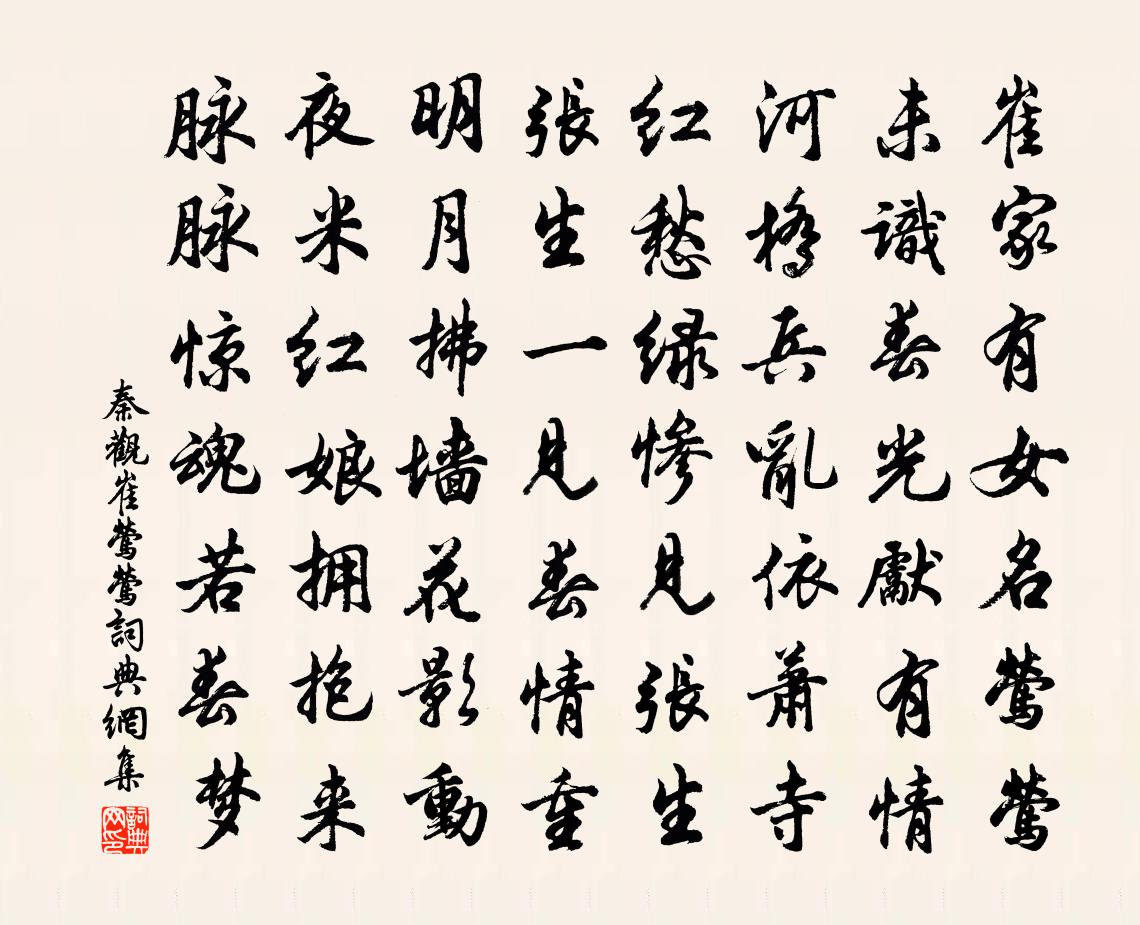 崔家有女名鶯鶯
未識春光獻有情
河橋兵亂依蕭寺
红愁绿惨見張生
張生一見春情重
明月拂墙花影動
夜米红娘拥抱来
脉脉惊魂若春梦
秦觀崔鶯鶯詞典網集
詞典网印